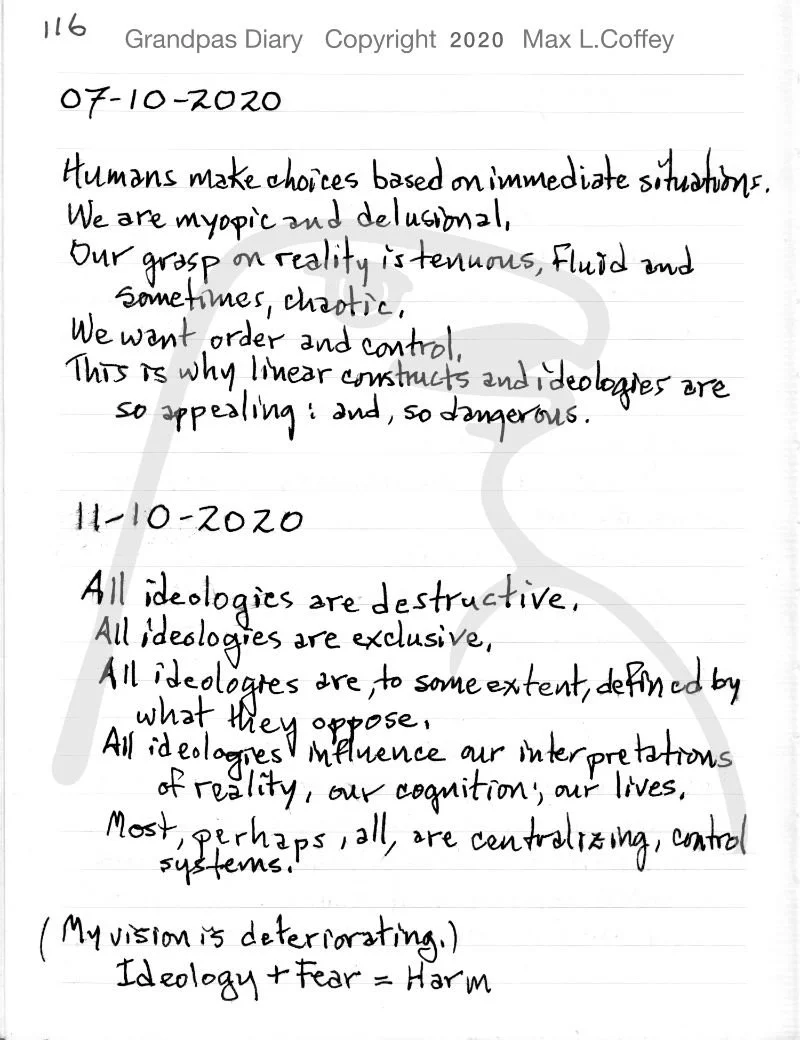 116
Grandpas Diary Copyright 2020 Max L.Coffey
07-10-2020
Humans make choices based on immediate situations.
We are myopic and delusional.
Our grasp on reality is tenuous, fluid and
sometimes, chaotic.
We want order and control.
This is why linear constructs and ideologies are
so appealing: and, so dangerous.
11-10-2020
All ideologies are destructive.
All ideologies are exclusive.
All ideologies are, to some extent, defined by
what they oppose.
All ideologies influence our interpretations
of reality, our cognition; our lives.
Most, perhaps, all, are centralizing, control
systems.
(My vision is deteriorating.)
Ideology + Fear = Harm